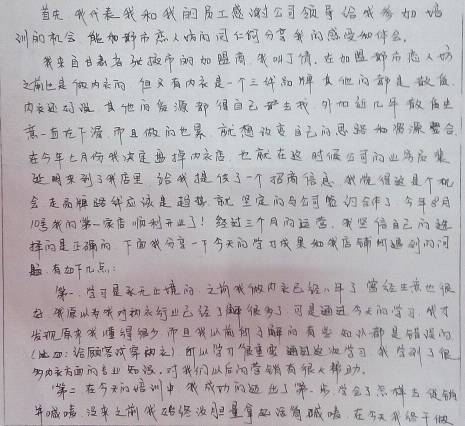 首先 我代表我和我的员工感谢公司领导给我参加培
训的机会 能和都市恋人坊的同仁们分享我的感受和体会。
我来自甘肃省张掖市的加盟商,我叫丁倩。在加盟都市恋人坊
之前也是做内衣的 但只有内衣是一个三线品牌 其他的都是散货
内衣还好没 其他的货源都得自己去找 外加近几年散货生
意一直在下滑 而且做的也累 就想改变自己的思路和资源整合
在今年七月份我决定要掉内衣店 也就在这时候公司的业务后装
延明来到了我店里 给我提供了一个招商信息 我觉得这是个机
会 走品牌路线应该是趋势 就坚定的与公司签约合作了 今年8月
10号我的第一家店顺利开业了! 经过三个月的运营,我坚信自己的选
择的是正确的 下面我分享一下今天的学习成果和我店铺所遇到的问
题 有如下几点:
第一 学习是永无止境的 之前我做内衣已经八年了 曾经生意也很
好 我原以为我对内衣行业已经了解很多了 可是通过今天的学习,我才
发现原来我懂得很少 而且我以前所了解的有些知识都是错误的
(比如:给顾客试穿内衣) 所以学习很重要 通过这次学习 我学到了很
多内衣方面的专业知识,对我们以后的营销有很大帮助。
第二 在今天的培训中 我成功的迈出了第一步 学会了怎样去促销
并喊嗓 没来之前我始终没胆量拿起话筒喊嗓 在今天我终于做